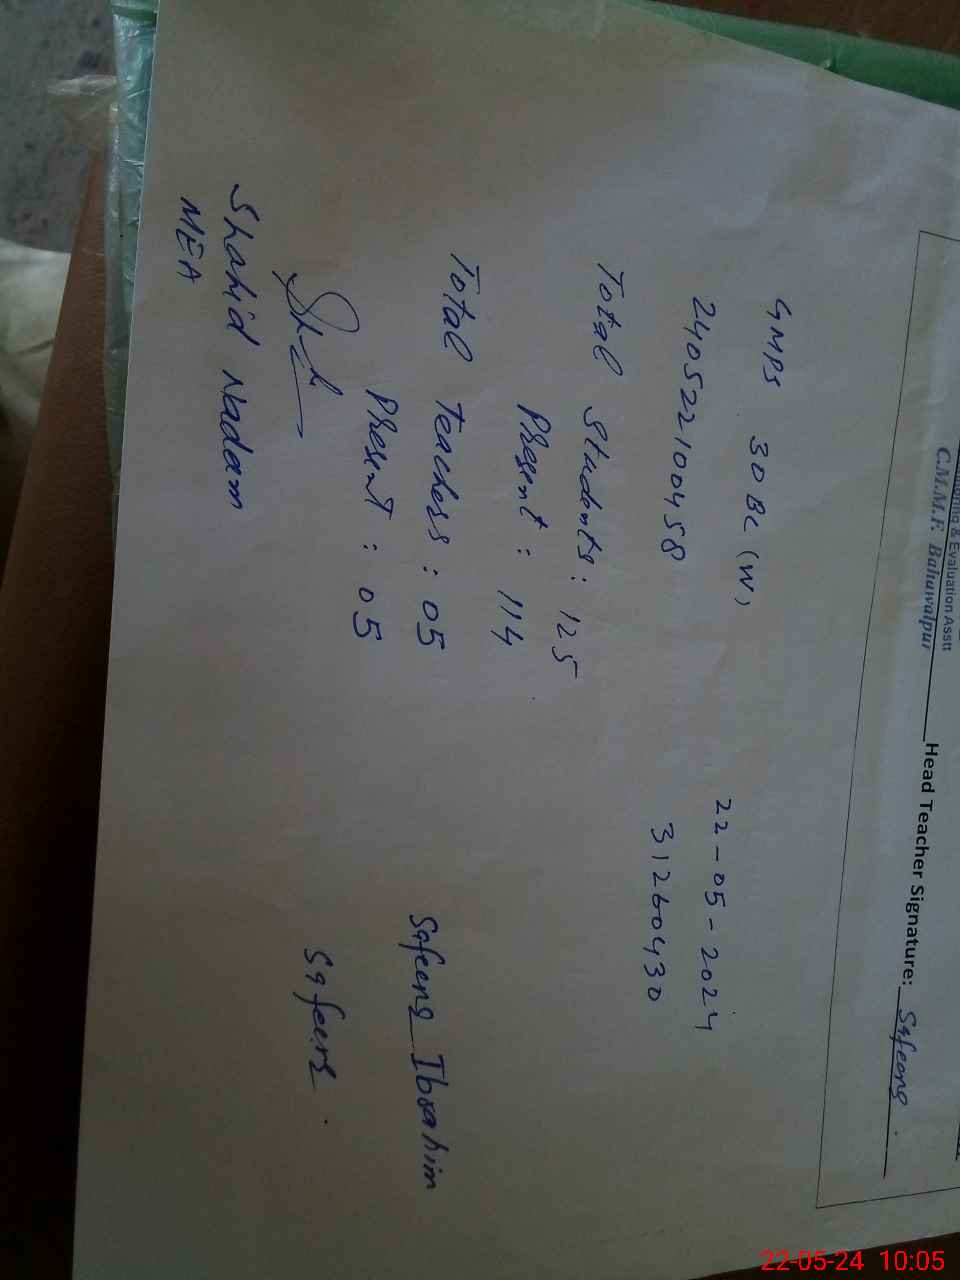 & Evaluation Asstt
C.M.M.F. Bahawalpur Head Teacher Signature: Safeena
GMPS 30 BC (W)
22-05-2024
240522100458
31260430
Total Students: 125
Present: 114
Total Teachers: 05
Present: 05
Safeena Ibrahim
Safeena
Shahid Nadam
MEA
22-05-24 10:05